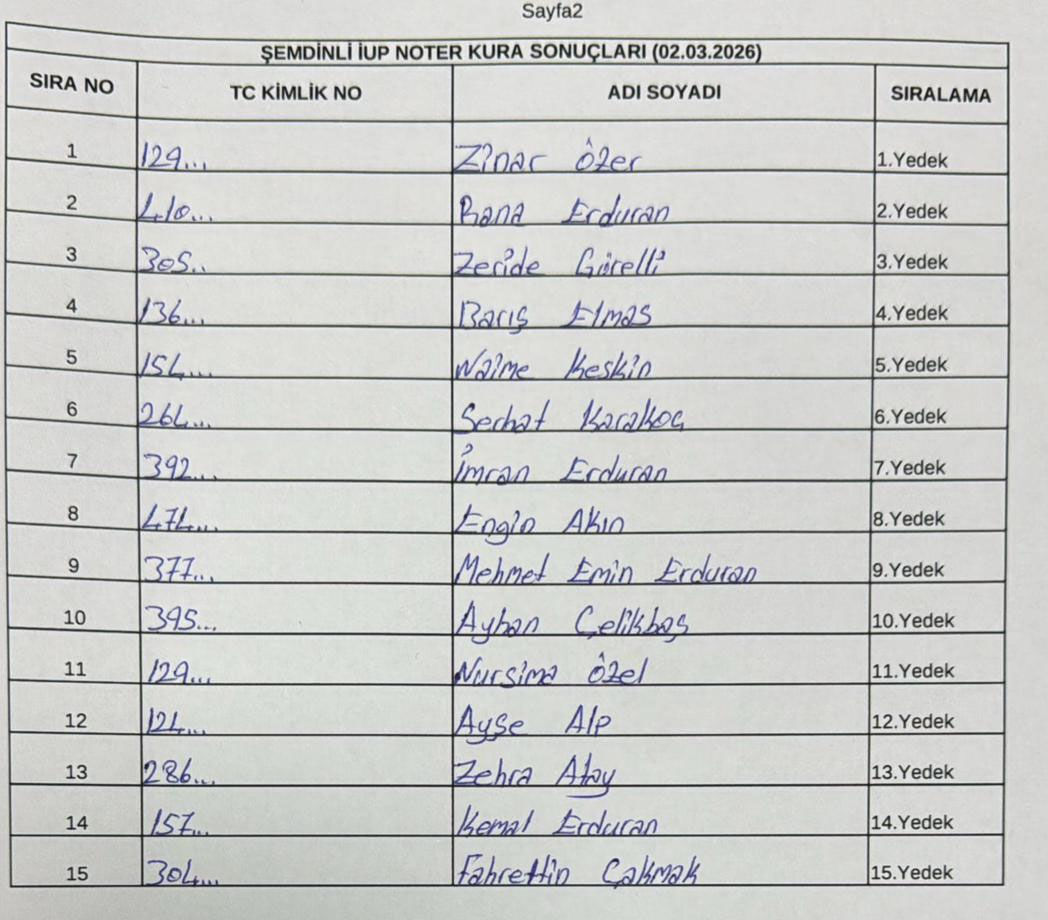 Sayfa2
ŞEMDİNLİ İUP NOTER KURA SONUÇLARI (02.03.2026)
SIRA NO TC KİMLİK NO ADI SOYADI SIRALAMA
1 129... Zinar Özer 1.Yedek
2 410... Rana Erduran 2.Yedek
3 305.. Zeride Gürelli 3.Yedek
4 136... Barış Elmas 4.Yedek
5 154... Naime Keskin 5.Yedek
6 264... Serhat Karakoç 6.Yedek
7 392... İmran Erduran 7.Yedek
8 474... Engin Akın 8.Yedek
9 377... Mehmet Emin Erduran 9.Yedek
10 395... Ayhan Çelikbaş 10.Yedek
11 129... Nursima Özel 11.Yedek
12 124... Ayşe Alp 12.Yedek
13 286... Zehra Atay 13.Yedek
14 157... Kemal Erduran 14.Yedek
15 304... Fahrettin Çakmak 15.Yedek